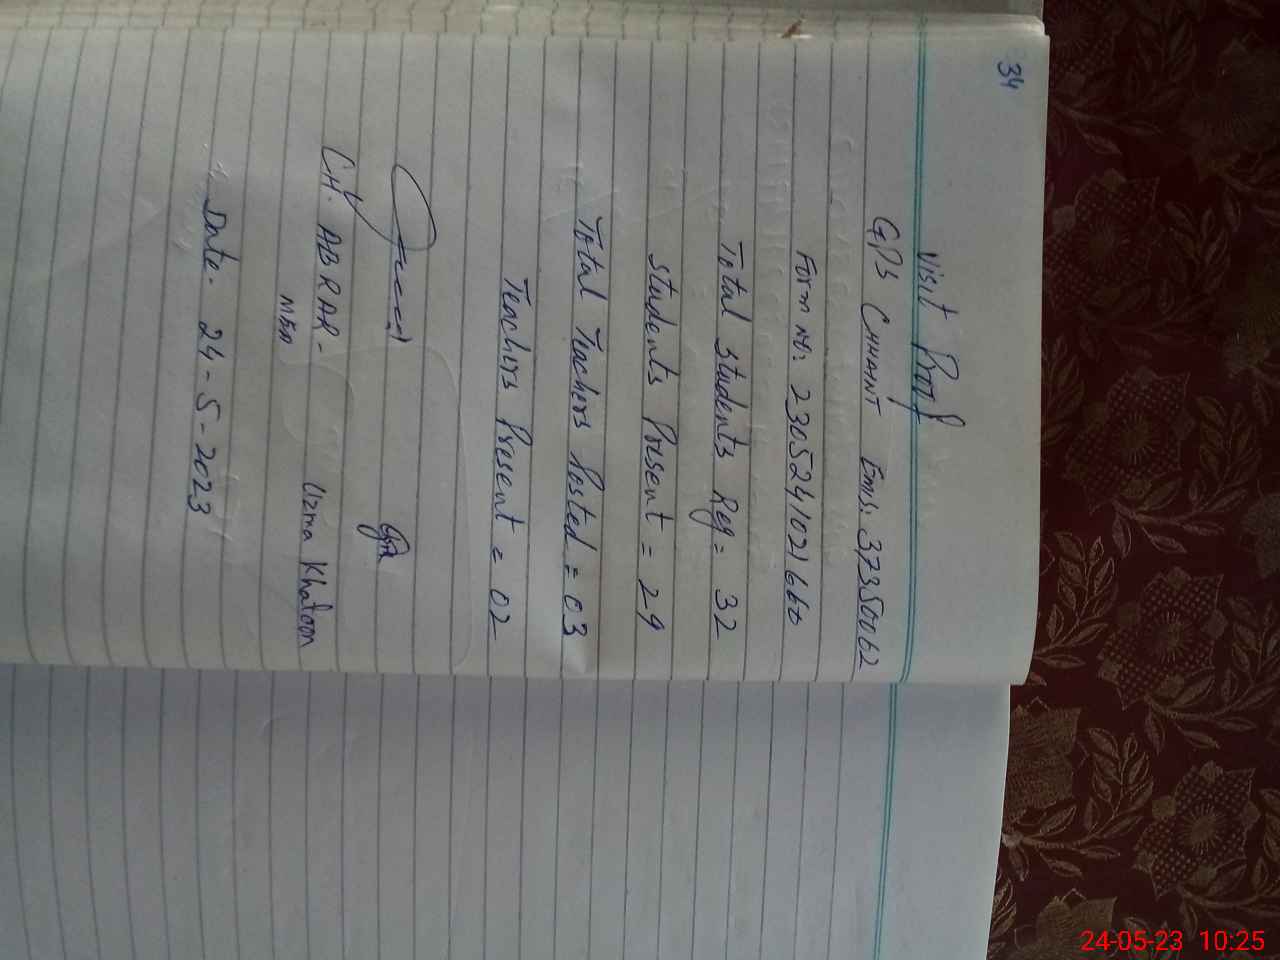 34
Visit Proof
GPS CHHAINT Emis. 37350062
Form no: 2305241021660
Total Students Reg = 32
Students Present = 29
Total Teachers Posted = 03
Teachers Present = 02
CH. ABRAR - Uzma Khatoon
MEA
Date. 24-5-2023
24-05-23 10:25